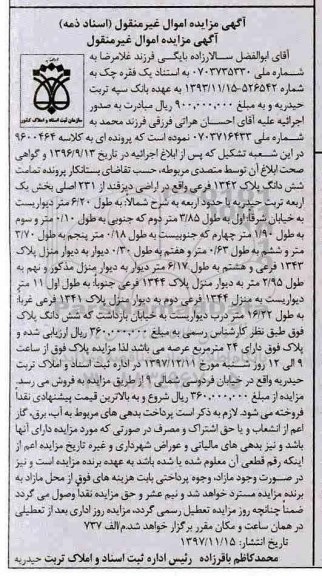 آگهی مزایده اموال غیرمنقول (اسناد ذمه)
آگهی مزایده اموال غیرمنقول
آقای ابوالفضل سالارزاده بایگی فرزند غلامرضا به
شماره ملی ۰۷۰۳۷۳۵۳۳۰ به استناد یک فقره چک به
شماره ۵۲۶۵۴۲-۱۳۹۳/۱۱/۱۵ به عهده بانک سپه تربت
حیدریه و به مبلغ ۹۰۰,۰۰۰,۰۰۰ ریال مبادرت به صدور
اجرائیه علیه آقای احسان هراتی فرزقی فرزند محمد به
شماره ملی ۰۷۰۳۷۱۶۴۳۳ نموده است که پرونده ای به کلاسه ۹۶۰۰۴۶۴
در این شعبه تشکیل که پس از ابلاغ اجرائیه در تاریخ ۱۳۹۶/۹/۱۳ و گواهی
صحت ابلاغ آن توسط متصدی مربوطه، حسب تقاضای بستانکار پرونده تمامت
شش دانگ پلاک ۱۳۴۲ فرعی واقع در اراضی دیزقند از ۲۳۱ اصلی بخش یک
اربعه تربت حیدریه با حدود اربعه به شرح شمالا: به طول ۶/۲۰ متر دیواریست
به خیابان شرقا: اول به طول ۳/۸۵ متر دوم که جنوبی به طول ۰/۱۰ متر و سوم
به طول ۱/۹۰ متر چهارم که جنوبیست به طول ۰/۱۸ متر پنجم به طول ۳/۷۰
متر و ششم به طول ۰/۶۳ متر و هفتم به طول ۰/۳۰ دیوار به دیوار منزل پلاک
۱۳۴۳ فرعی و هشتم به طول ۶/۱۷ متر دیوار به دیوار منزل مذکور و نهم به
طول ۲/۹۵ متر به دیوار منزل پلاک ۱۳۴۴ فرعی جنوبا: به طول اول ۱۱ متر
دیواریست به منزل ۱۳۴۴ فرعی دوم به دیوار منزل پلاک ۱۳۴۱ فرعی غربا:
به طول ۱۶/۲۲ متر درب و دیواریست به خیابان بازداشت که شش دانگ پلاک
فوق طبق نظر کارشناس رسمی به مبلغ ۳۶۰,۰۰۰,۰۰۰ ریال ارزیابی شده و
پلاک فوق دارای ۲۴ مترمربع عرصه می باشد لذا مزایده پلاک فوق از ساعت
۹ الی ۱۲ روز شنبه مورخ ۱۳۹۷/۱۲/۱۱ در اداره ثبت اسناد و املاک تربت
حیدریه واقع در خیابان فردوسی شمالی ۹ از طریق مزایده به فروش می رسد.
مزایده از مبلغ ۳۶۰,۰۰۰,۰۰۰ ریال شروع و به بالاترین قیمت پیشنهادی نقدا
فروخته می شود. لازم به ذکر است پرداخت بدهی های مربوط به آب، برق، گاز
اعم از انشعاب و یا حق اشتراک و مصرف در صورتی که مورد مزایده دارای آنها
باشد و نیز بدهی های مالیاتی و عوارض شهرداری و غیره تاریخ مزایده اعم از
اینکه رقم قطعی آن معلوم شده یا شده باشد به عهده برنده مزایده است و نیز
در صورت وجود مازاد، وجوه پرداختی بابت هزینه های فوق از محل مازاد به
برنده مزایده مسترد خواهد شد و نیم عشر و حق مزایده نقدا وصول می گردد
ضمنا چنانچه روز مزایده تعطیل رسمی گردد، مزایده روز اداری بعد از تعطیلی
در همان ساعت و مکان مقرر برگزار خواهد شد.م/الف ۷۳۷
تاریخ انتشار: ۱۳۹۷/۱۱/۱۵
محمدکاظم باقرزاده رئیس اداره ثبت اسناد و املاک تربت حیدریه
سازمان ثبت اسناد و املاک کشور